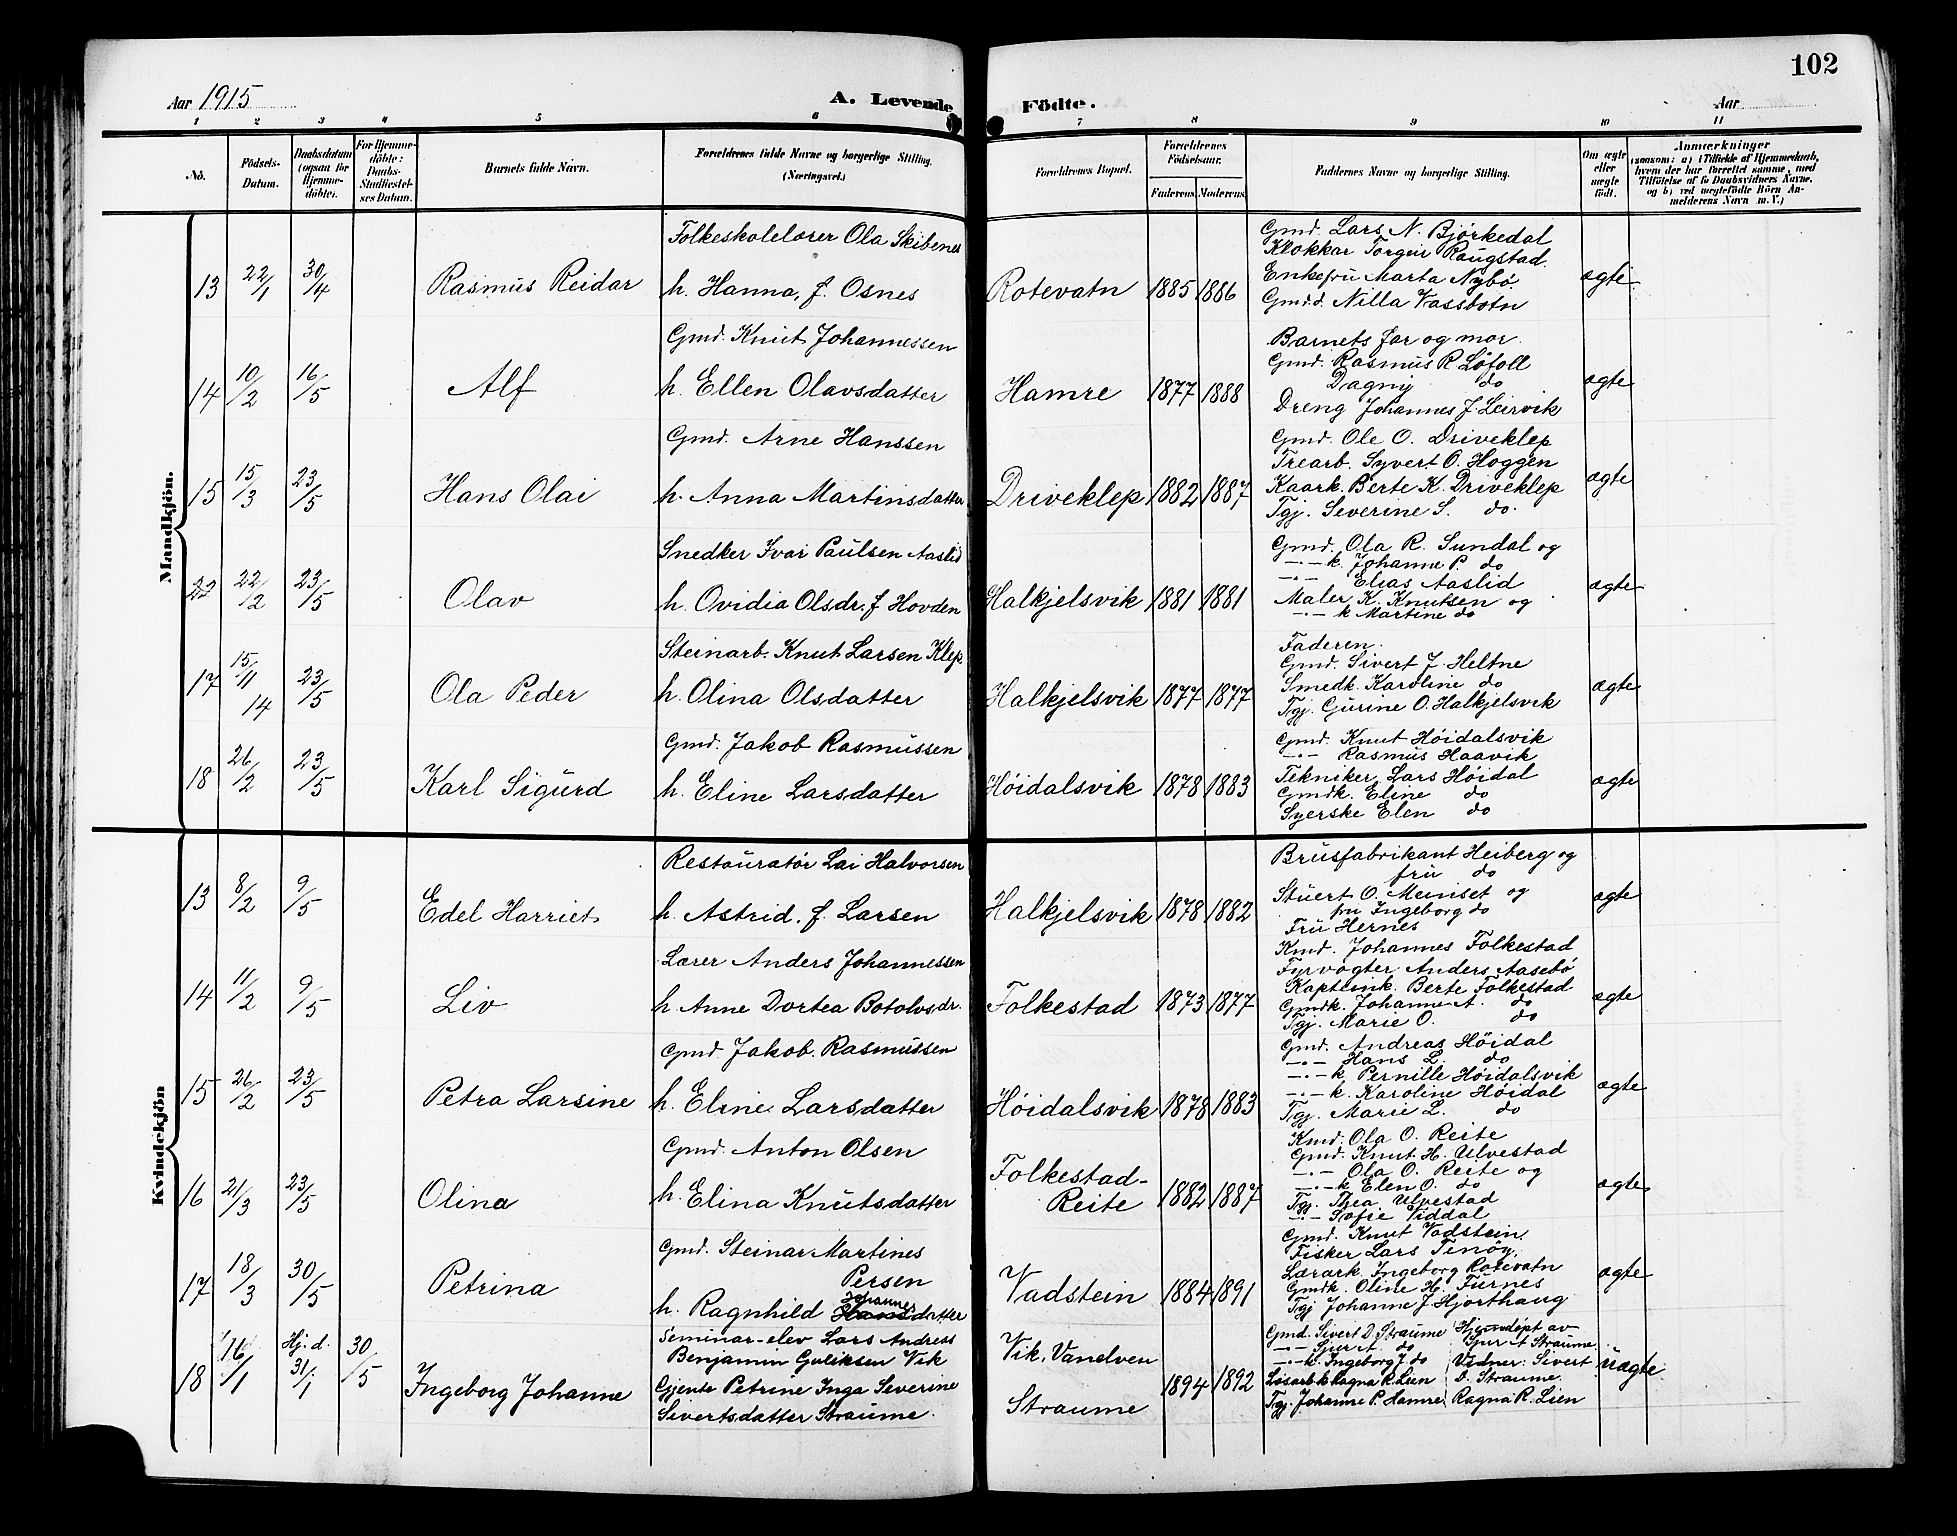 102
Aar 1915
A. Levende Födte.
Aar
1 2 3 4 5 6 7 8 9 10 11
No.
Födsels-Datum.
Daabsdatum (ogsaa for Hjemmedöbte).
For Hjemmedöbte: Daabs-Stadfæstelses Datum.
Barnets fulde Navn.
Forældrenes fulde Navne og borgerlige Stilling.
(Næringsvei.)
Forældrenes Bopæl.
Forældrenes Födselsaar.
Faderens Moderens
Faddernes Navne og borgerlige Stilling.
Om ægte eller uægte födt.
Anmærkninger
(saasom: a) i Tilfælde af Hjemmedaab, hvem der har forrettet samme, med Tilföielse af to Daabsvidners Navne, og b) ved uægtefödte Börn Anmelderens Navn m.V.)
Mandkjön.
Folkeskolelærer Ola Skibenes
13 22/1 30/4 Rasmus Reidar h. Hanna, f. Osnes Rotevatn 1885 1886 ægte
Gmd. Lars N. Bjørkedal
Klokkar Torgeir Raugstad.
Enkefru Marta Nybø
Gmdd. Nilla Vassbotn
Gmd. Knut Johannessen
14 10/2 16/5 Alf h. Ellen Olavsdatter Hamre 1877 1888 ægte
Barnets far og mor.
Gmd. Rasmus R. Løfoll
Dagny do
Dreng Johannes J. Leirvik
Gmd. Arne Hanssen
15 15/3 23/5 Hans Olai h. Anna Martinsdatter Driveklep 1882 1887 ægte
Gmd. Ole O. Driveklep
Trearb. Syvert O. Hoggen
Kaark. Berte K. Driveklep
Tgj. Severine S. do.
Snedker Ivar Paulsen Aaslid
22 22/2 23/5 Olav h. Ovidia Olsdr. f. Hovden Halkjelsvik 1881 1881 ægte
Gmd. Ola R. Sundal og
-·- k. Johanne P. do
-·- Elias Aaslid
Maler K. Knutsen og
-·- k Martine do
Steinarb. Knut Larsen Klep
17 15/11 14 23/5 Ola Peder h. Olina Olsdatter Halkjelsvik 1877 1877 ægte
Faderen.
Gmd. Sivert J. Heltne
Smedk. Karoline do
Tgj. Gurine O. Halkjelsvik
Gmd. Jakob Rasmussen
18 26/2 23/5 Karl Sigurd h. Eline Larsdatter Høidalsvik 1878 1883 ægte
Gmd. Knut Høidalsvik
-·- Rasmus Haavik
Tekniker Lars Høidal
Gmdk. Eline do
Syerske Elen do
Kvindekjön
Restauratør Lai Halvorsen
13 8/2 9/5 Edel Harriet h. Astrid. f. Larsen Halkjelsvik 1878 1882 ægte
Brusfabrikant Heiberg og
fru do
Stuert O. Meinset og
fru Ingeborg do
Fru Hernes
Lærer Anders Johannessen
14 11/2 9/5 Liv h. Anne Dortea Botolvsdr. Folkestad 1873 1877 ægte
Kmd. Johannes Folkestad
Fyrvogter Anders Aasebø
Berte Folkestad
Gmdk. Johanne A. do
Tgj. Marie O. do
Gmd. Jakob Rasmussen
15 26/2 23/5 Petra Larsine h. Eline Larsdatter Høidalsvik 1878 1883 ægte
Gmd. Andreas Høidal
-·- Hans L. do
-·- k Pernille Høidalsvik
-·- k. Karoline Høidal
Tgj. Marie L. do
Gmd. Anton Olsen
16 21/3 23/5 Olina h. Elina Knutsdatter Folkestad-Reite 1882 1887 ægte
Kmd. Ola O. Reite
Gmd. Knut H. Ulvestad
-·- Ola O. Reite og
-·- k Elen O. do
Tgj. Thea Ulvestad
-·- Sofie Viddal
Gmd. Steinar Martines
Persen
17 18/3 30/5 Petrina h. Ragnhild Hansdatter Johannes Vadstein 1884 1891 ægte
Gmd. Knut Vadstein
Fisker Lars Tenøy.
Lærark. Ingeborg Rotevatn
Gmdk. Oline H. Furnes
Tgj Johanne J. Hjorthaug
Seminar-elev Lars Andreas
Benjamin Guliksen Vik
18 16/1 Hj. d. 31/1 30/5 Ingeborg Johanne Gjente Petrine Inga Severine
Sivertsdatter Straume.
Vik, Vanelven
Straume
1894 1892 uægte
Gmd. Sivert D. Straume
-·- Sjur A. do
-·- k. Ingeborg J do
Løsarb.k Ragna R. Lien
Tgj. Johanne P. Hamre
Hjemdøpt av
Sjur A Straume.
Vidner: Sivert
D. Straume.
Ragna R. Lien